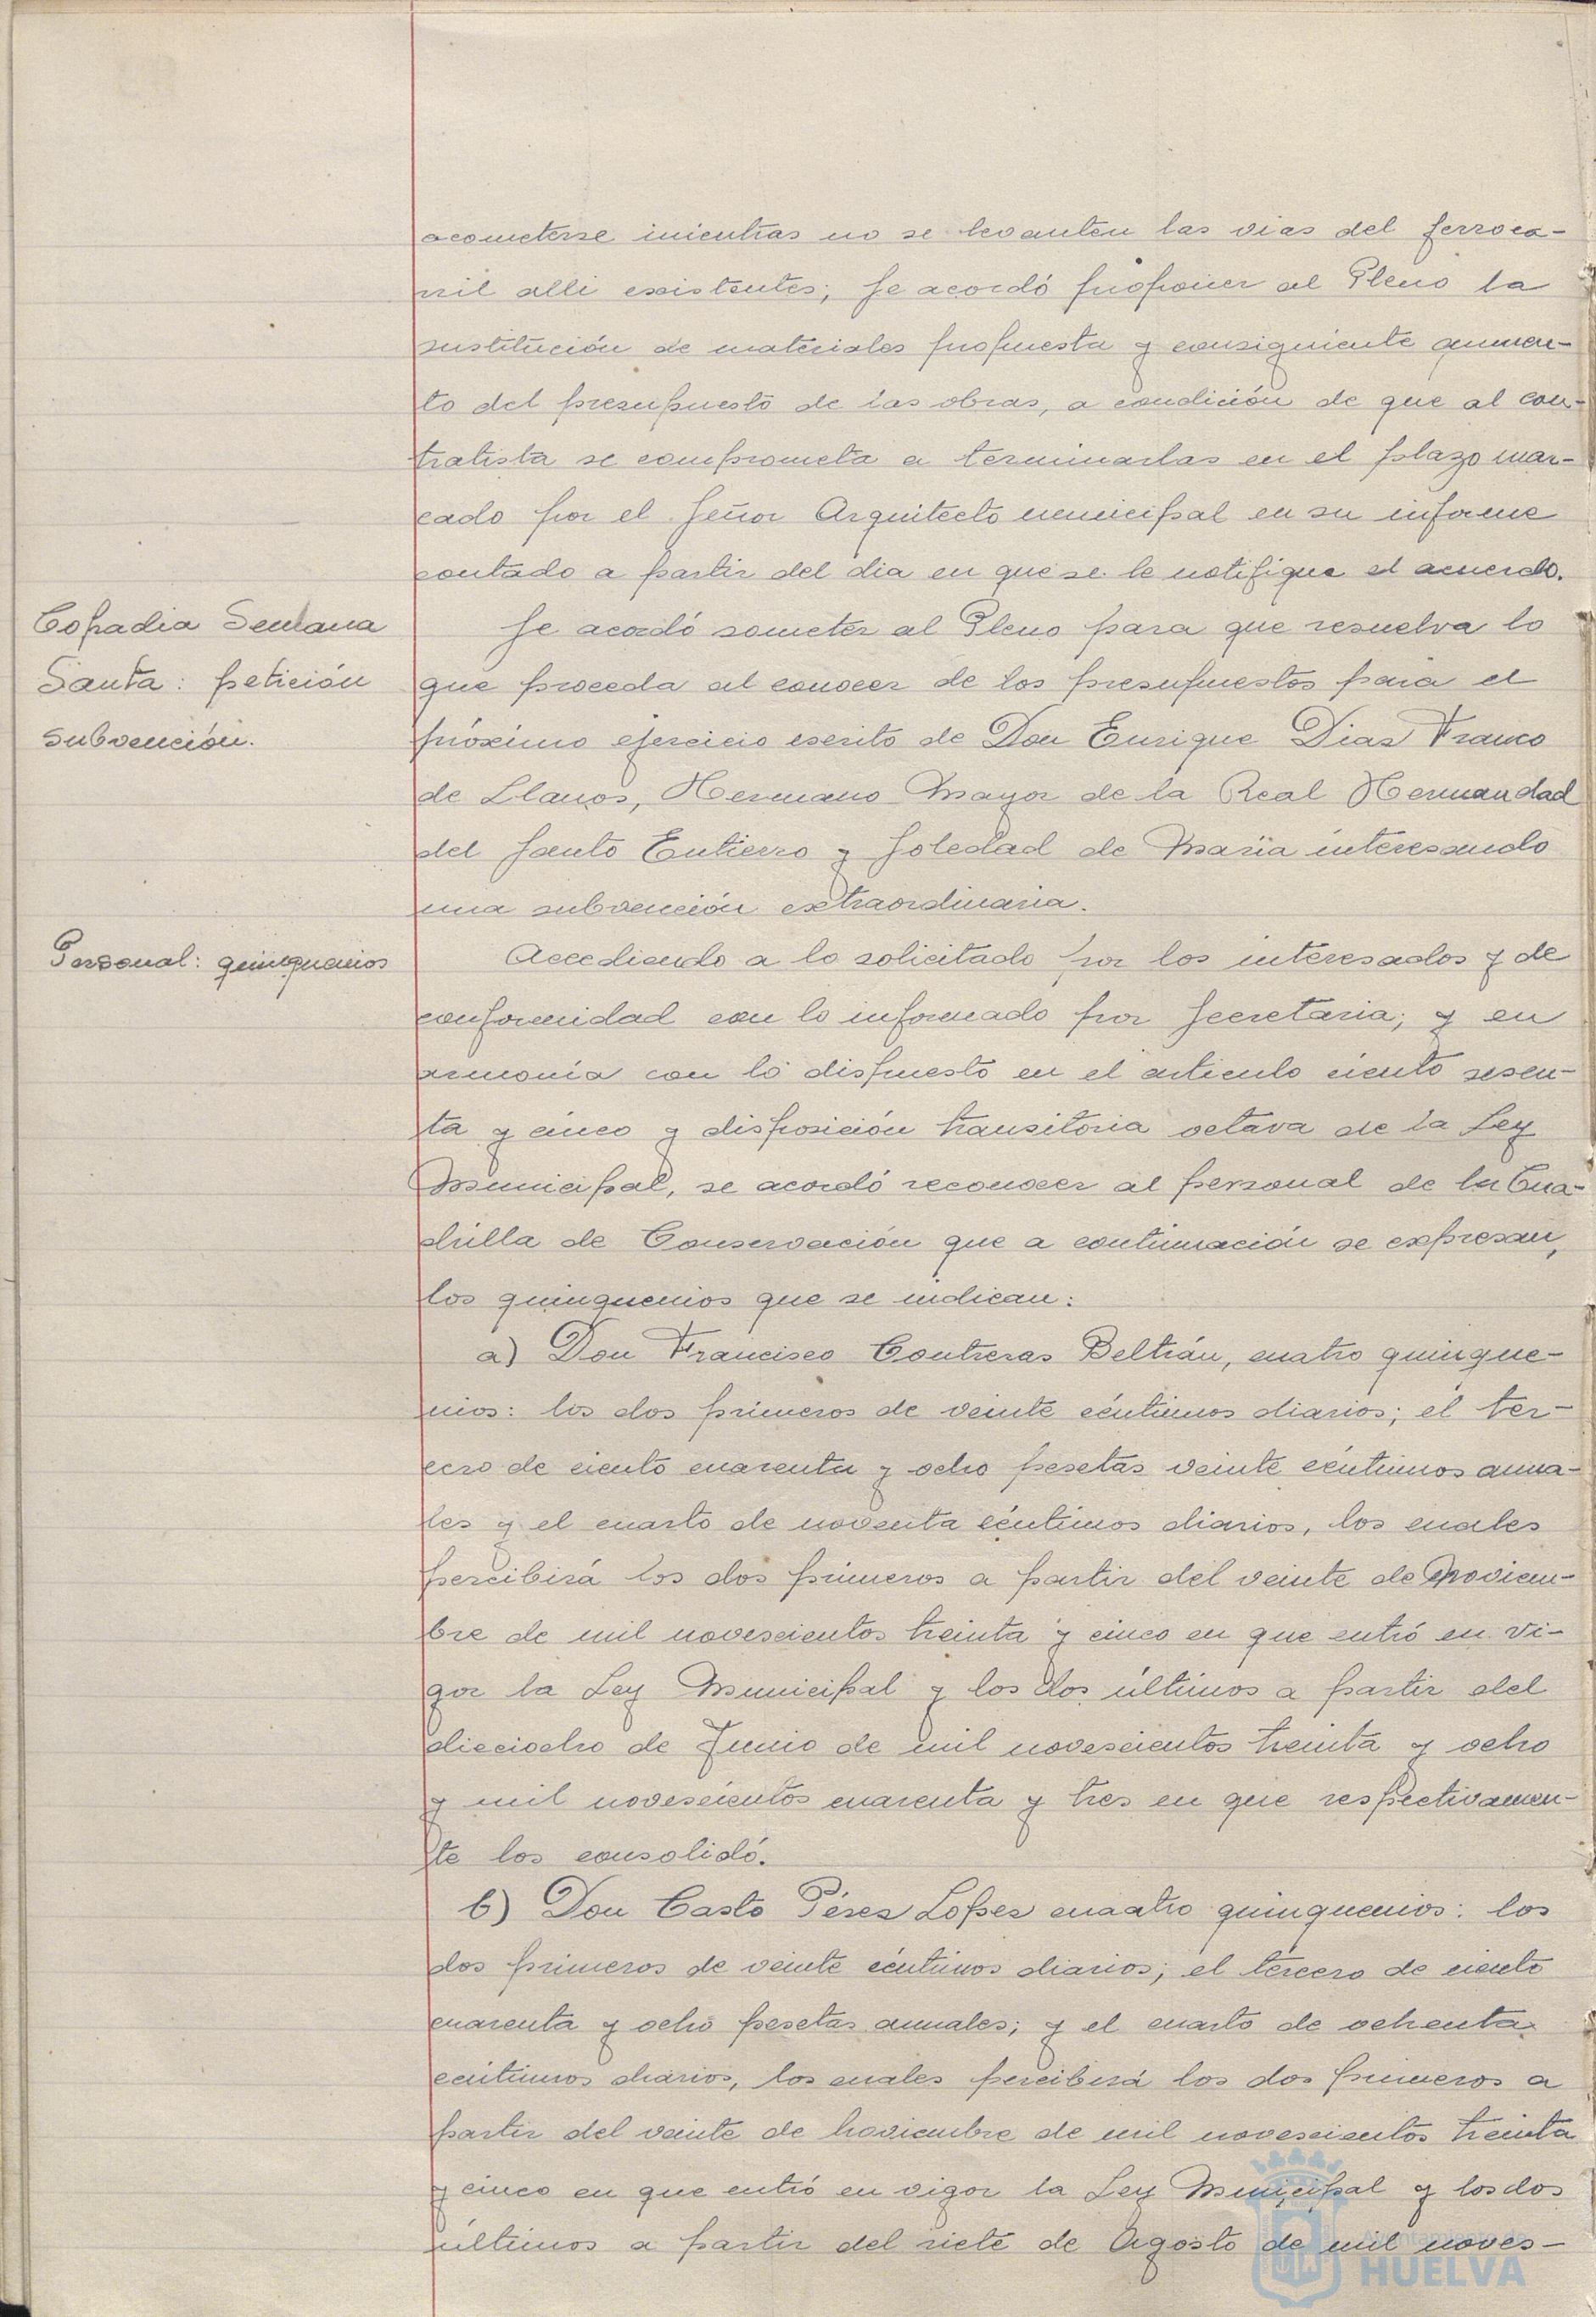 acometerse mientras no se levanten las vias del ferroca-
rril alli existentes; Se acordó proponer al Pleno la
sustitución de materiales propuesta y consiguiente aumen-
to del presupuesto de las obras, a condición de que al con-
tratista se comprometa a terminarlas en el plazo mar-
cado por el Señor Arquitecto municipal en su informe
contado a partir del dia en que se le notifique el acuerdo.
Cofradia Semana
Santa: petición
subvención.
Se acordó someter al Pleno para que resuelva lo
que proceda al conocer de los presupuestos para el
próximo ejercicio escrito de Don Enrique Dias Franco
de Llanos, Hermano Mayor de la Real Hermandad
del Santo Entierro y Soledad de María interesando
una subvención extraordinaria.
Personal: quinquenios
Accediendo a lo solicitado por los interesados y de
conformidad con lo informado por Secretaria; y en
armonía con lo dispuesto en el articulo ciento sesen-
ta y cinco y disposición transitoria octava de la Ley
Municipal, se acordó reconocer al personal de la Cua-
drilla de Conservación que a continuación se expresan,
los quinquenios que se indican:
a) Don Francisco Contreras Beltrán, cuatro quinque-
nios: los dos primeros de veinte céntimos diarios; el ter-
cero de ciento cuarenta y ocho pesetas veinte céntimos anua-
les y el cuarto de noventa céntimos diarios, los cuales
percibirá los dos primeros a partir del veinte de Noviem-
bre de mil novescientos treinta y cinco en que entró en vi-
gor la Ley Municipal y los dos últimos a partir del
dieciocho de Junio de mil novescientos treinta y ocho
y mil novescientos cuarenta y tres en que respectivamen-
te los consolidó.
b) Don Casto Péres Lopes cuaatro quinquenios: los
dos primeros de veinte céntimos diarios; el tercero de ciento
cuarenta y ocho pesetas anuales; y el cuarto de ochenta
céntimos diarios, los cuales percibirá los dos primeros a
partir del veinte de noviembre de mil novescientos treinta
y cinco en que entró en vigor la Ley Municipal y los dos
últimos a partir del siete de Agosto de mil noves-
Ayuntamiento de
HUELVA